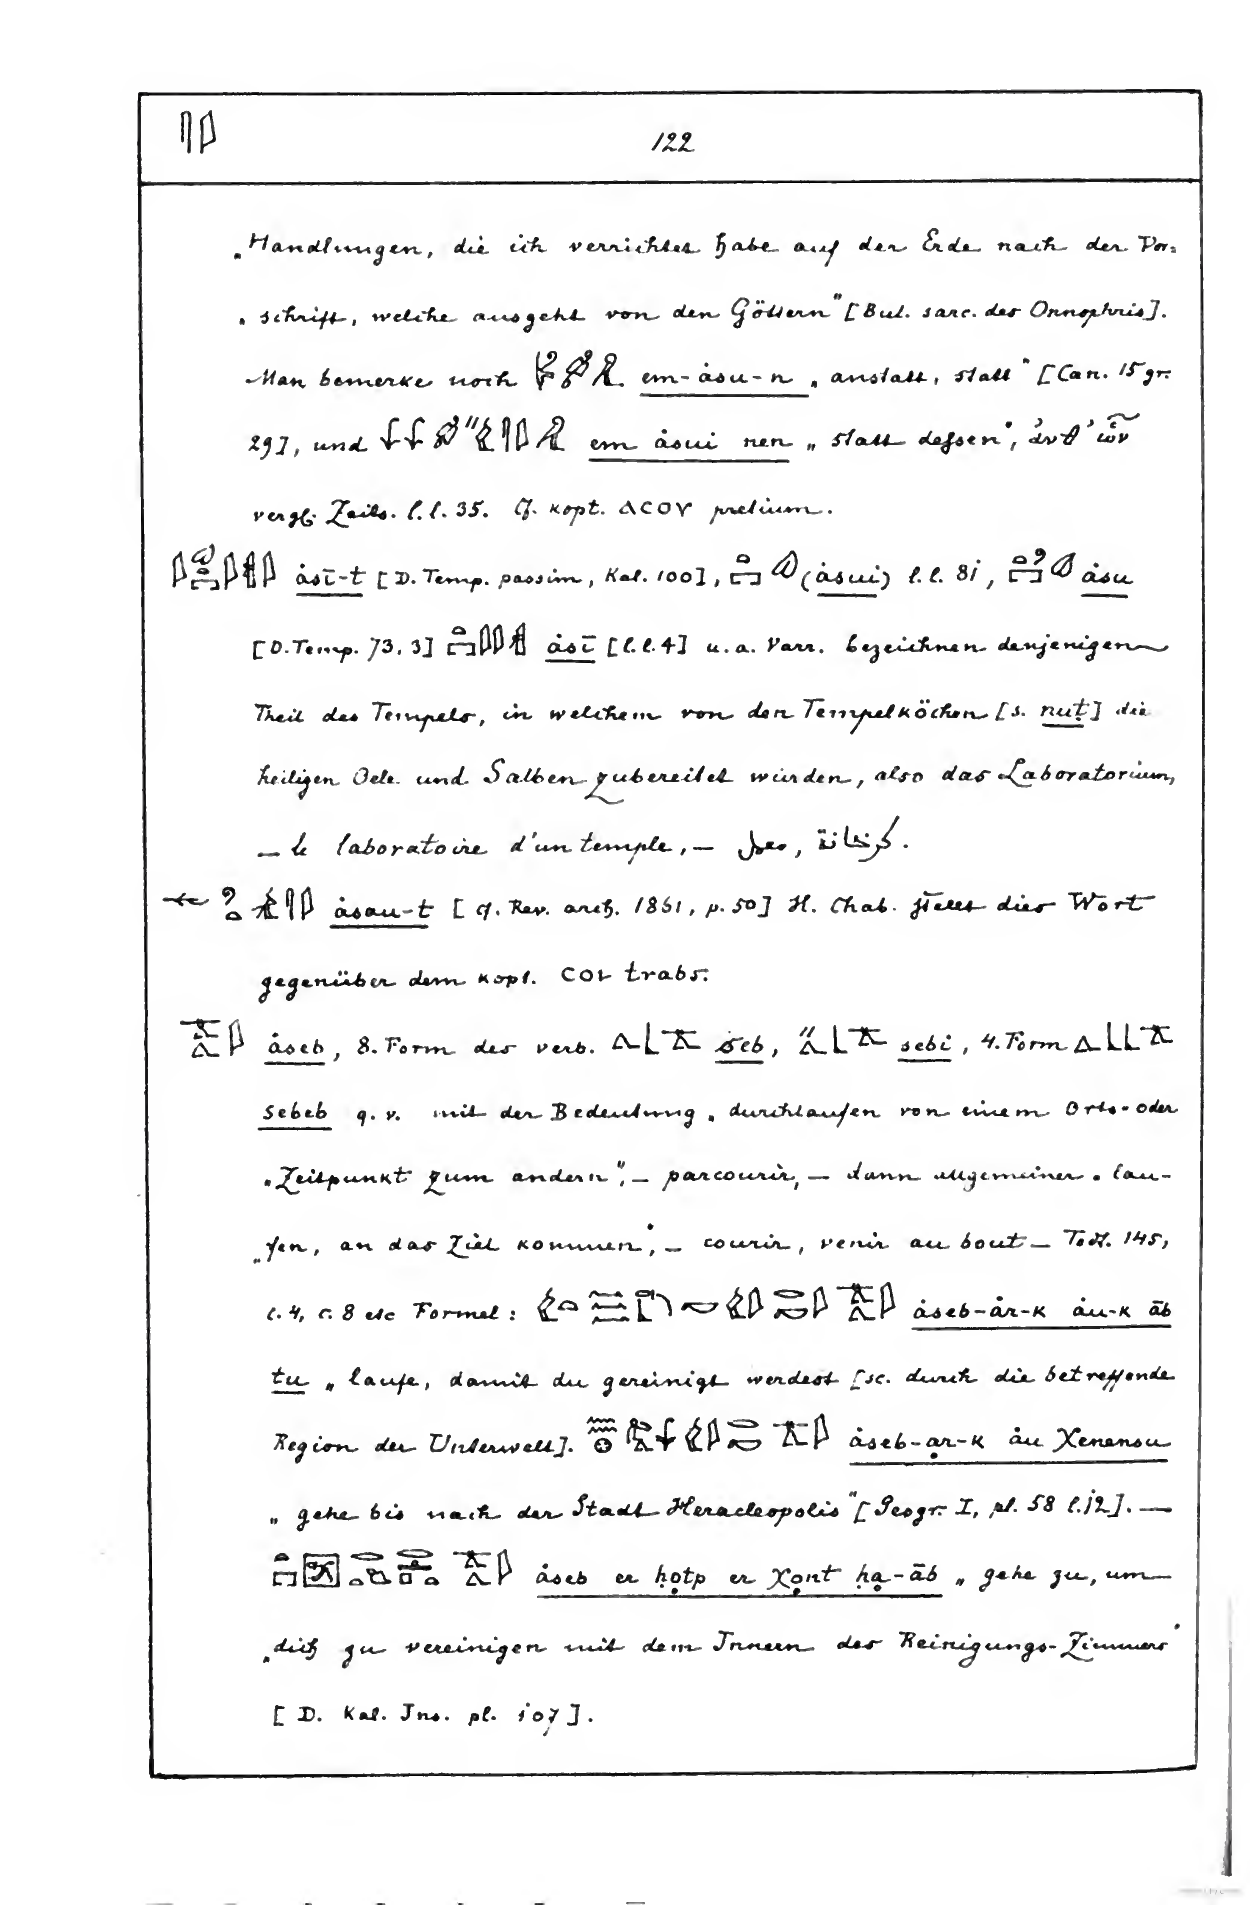 122
„Handlungen, die ich verrichtet habe auf der Erde nach der Vor=
„schrift, welche ausgeht von den Göttern" [Bul. sarc. des Onnophris].
Man bemerke noch em-åsu-n „anstatt, statt" [Can. 15 gr.
29], und em åsui nen „statt dessen", ἀνθ' ὧν
vergl. Zeits. l.l. 35. Cf. kopt. ⲁⲥⲟⲩ pretium.
åsī-t [D. Temp. passim, Kal. 100], (åsui) l.l. 81, åsu
[D. Temp. 73, 3] åsī [l.l. 4] u. a. Varr. bezeichnen denjenigen
Theil des Tempels, in welchem von den Tempelköchen [s. nuṭ] die
heiligen Oele und Salben zubereitet wurden, also das Laboratorium,
— le laboratoire d'un temple, — معمل, كرخانة.
åsau-t [cf. Rev. arch. 1861, p. 50] H. Chab. stellt dies Wort
gegenüber dem kopt. ⲥⲟⲓ trabs.
åseb, 8. Form des verb. seb, sebi, 4. Form
sebeb q. v. mit der Bedeutung „durchlaufen von einem Orts- oder
„Zeitpunkt zum andern", — parcourir, — dann allgemeiner „lau-
„fen, an das Ziel kommen", — courir, venir au bout — Todt. 145,
l. 4, c. 8 etc Formel: åseb-år-k åu-k āb
tu „laufe, damit du gereinigt werdest [sc. durch die betreffende
Region der Unterwelt]. åseb-ạr-k åu Χenensu
„gehe bis nach der Stadt Heracleopolis" [Geogr. I, pl. 58 l. 12]. —
åseb er ḥọtp er Χọnt ḥạ-āb „gehe zu, um
„dich zu vereinigen mit dem Innern des Reinigungs-Zimmers"
[D. Kal. Ins. pl. 107].